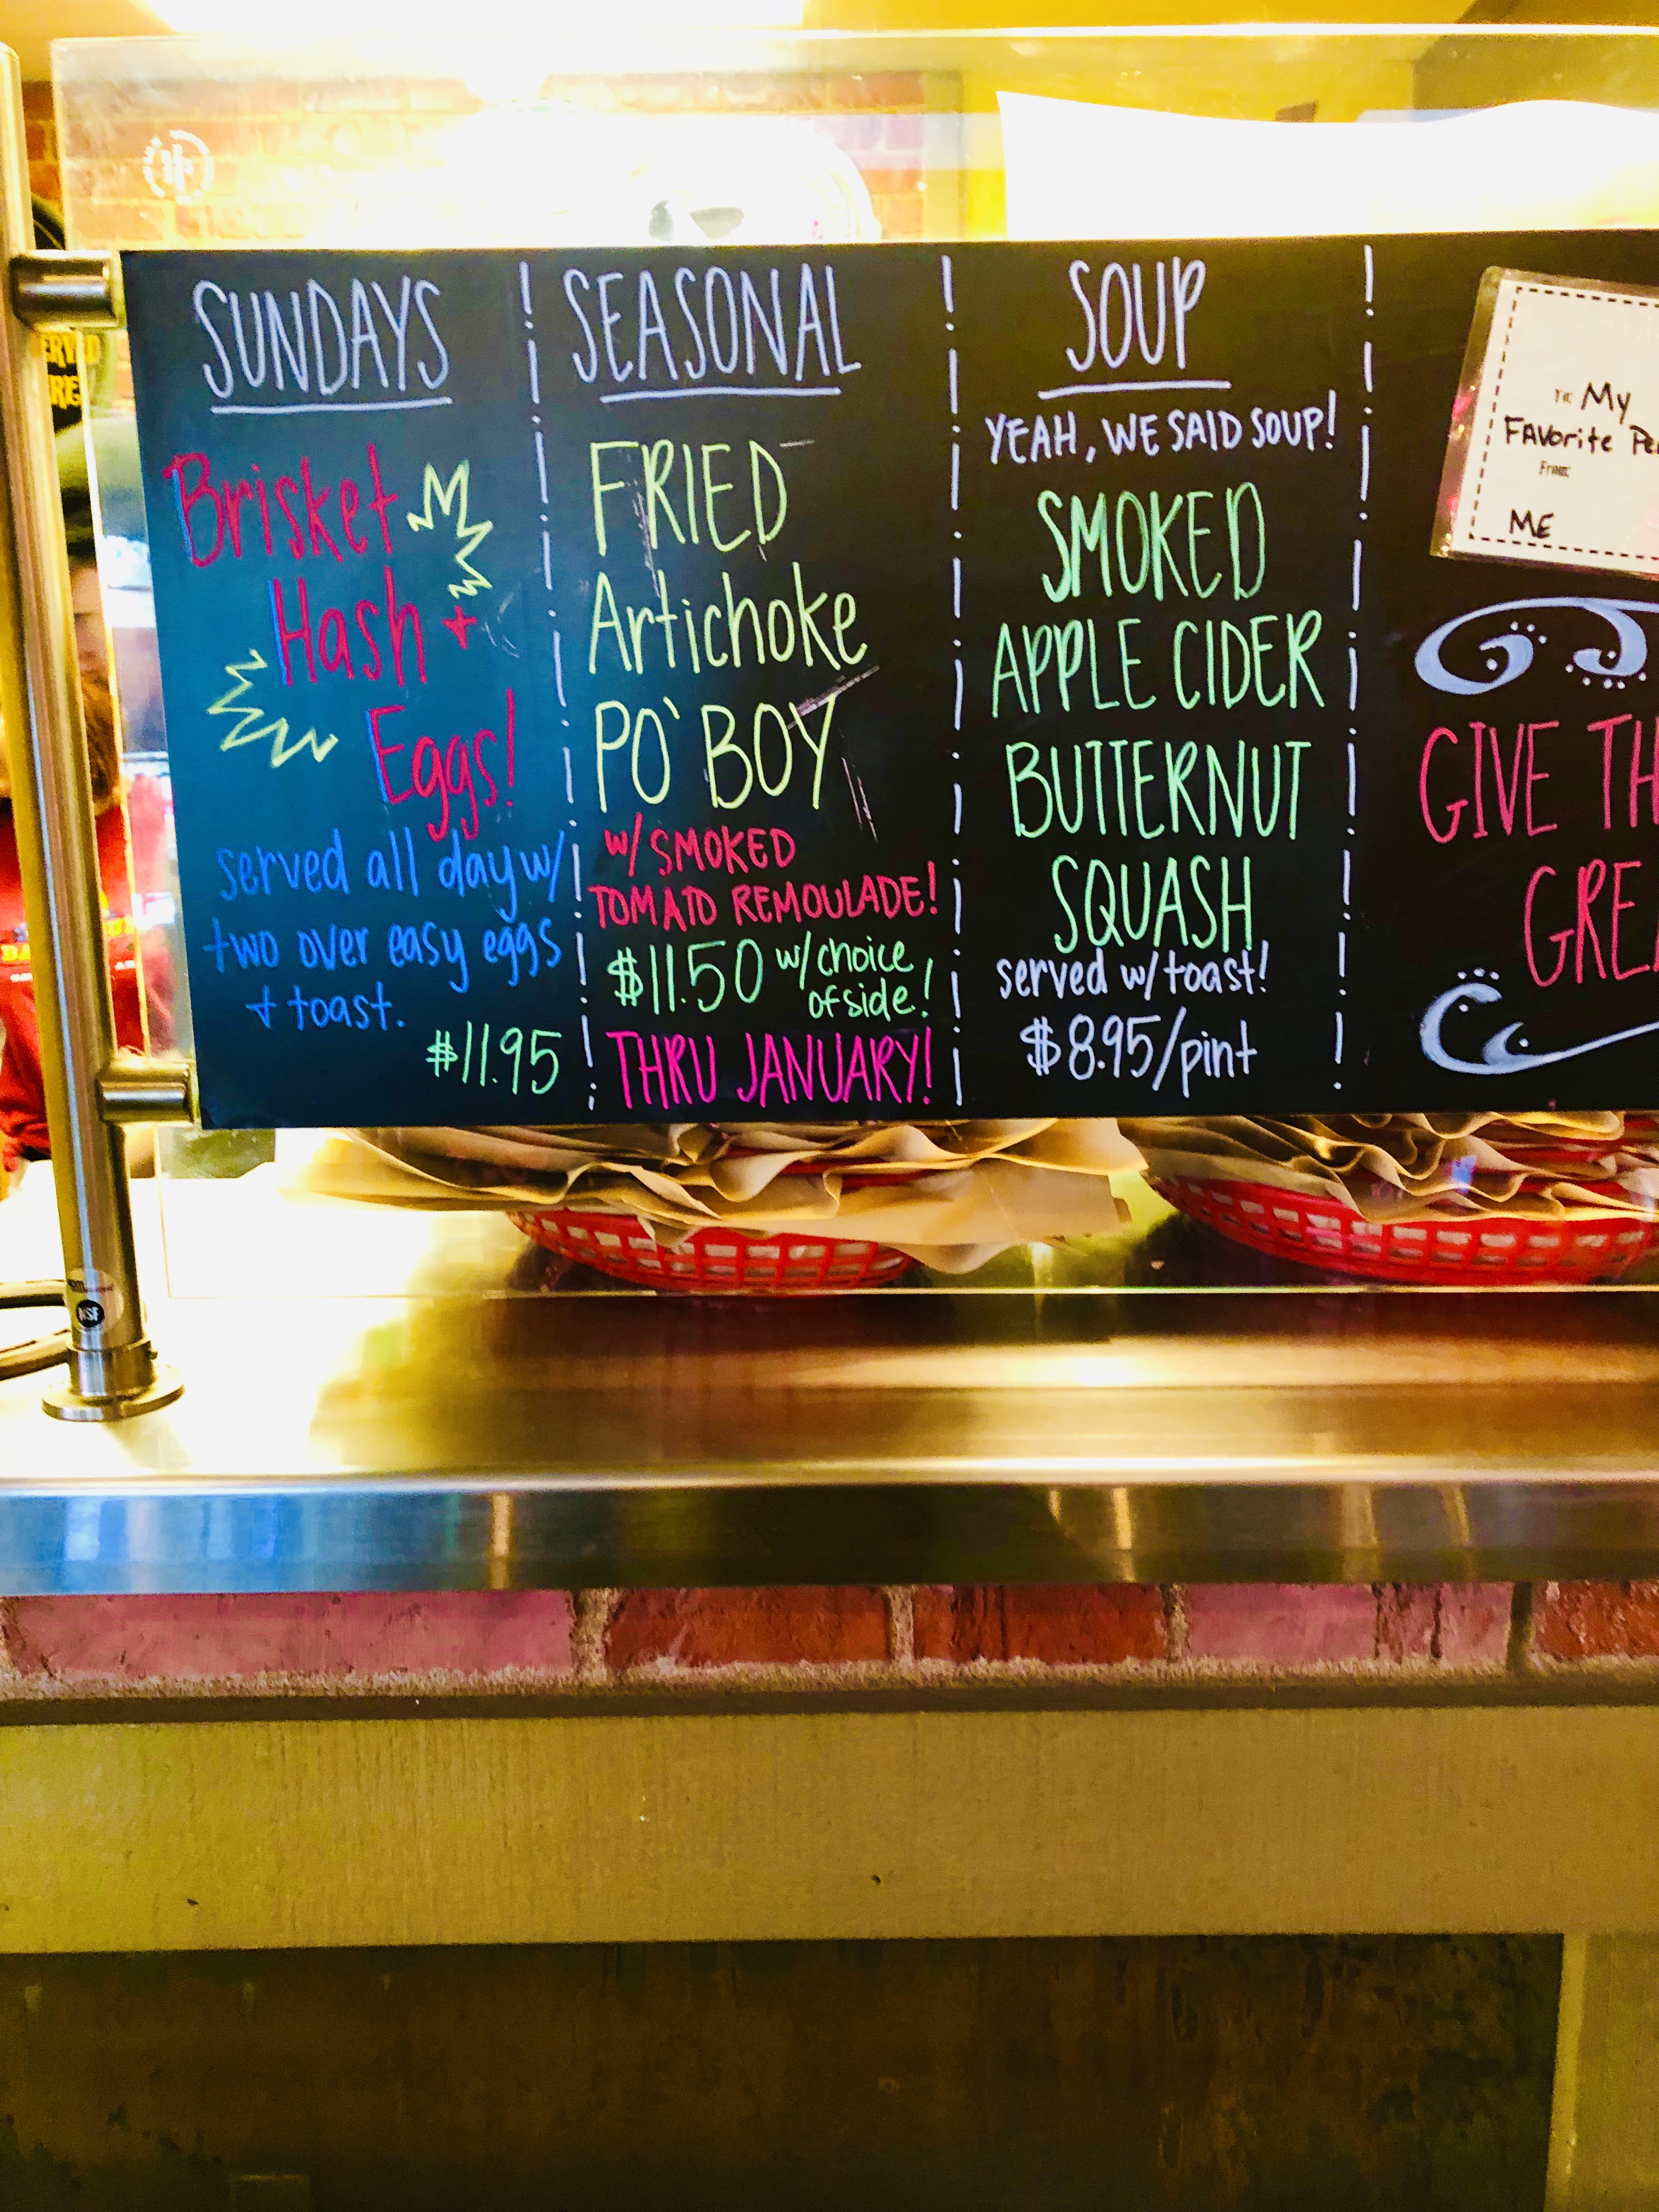 SUNDAYS
Brisket
Hash +
Eggs!
served all day w/
two over easy eggs
+ toast.
$11.95
SEASONAL
FRIED
Artichoke
PO' BOY
w/ SMOKED
TOMATO REMOULADE!
$11.50 w/ choice
of side!
THRU JANUARY!
SOUP
YEAH, WE SAID SOUP!
SMOKED
APPLE CIDER
BUTTERNUT
SQUASH
served w/ toast!
$8.95/pint
To: My
Favorite
From:
ME
GIVE
NSF